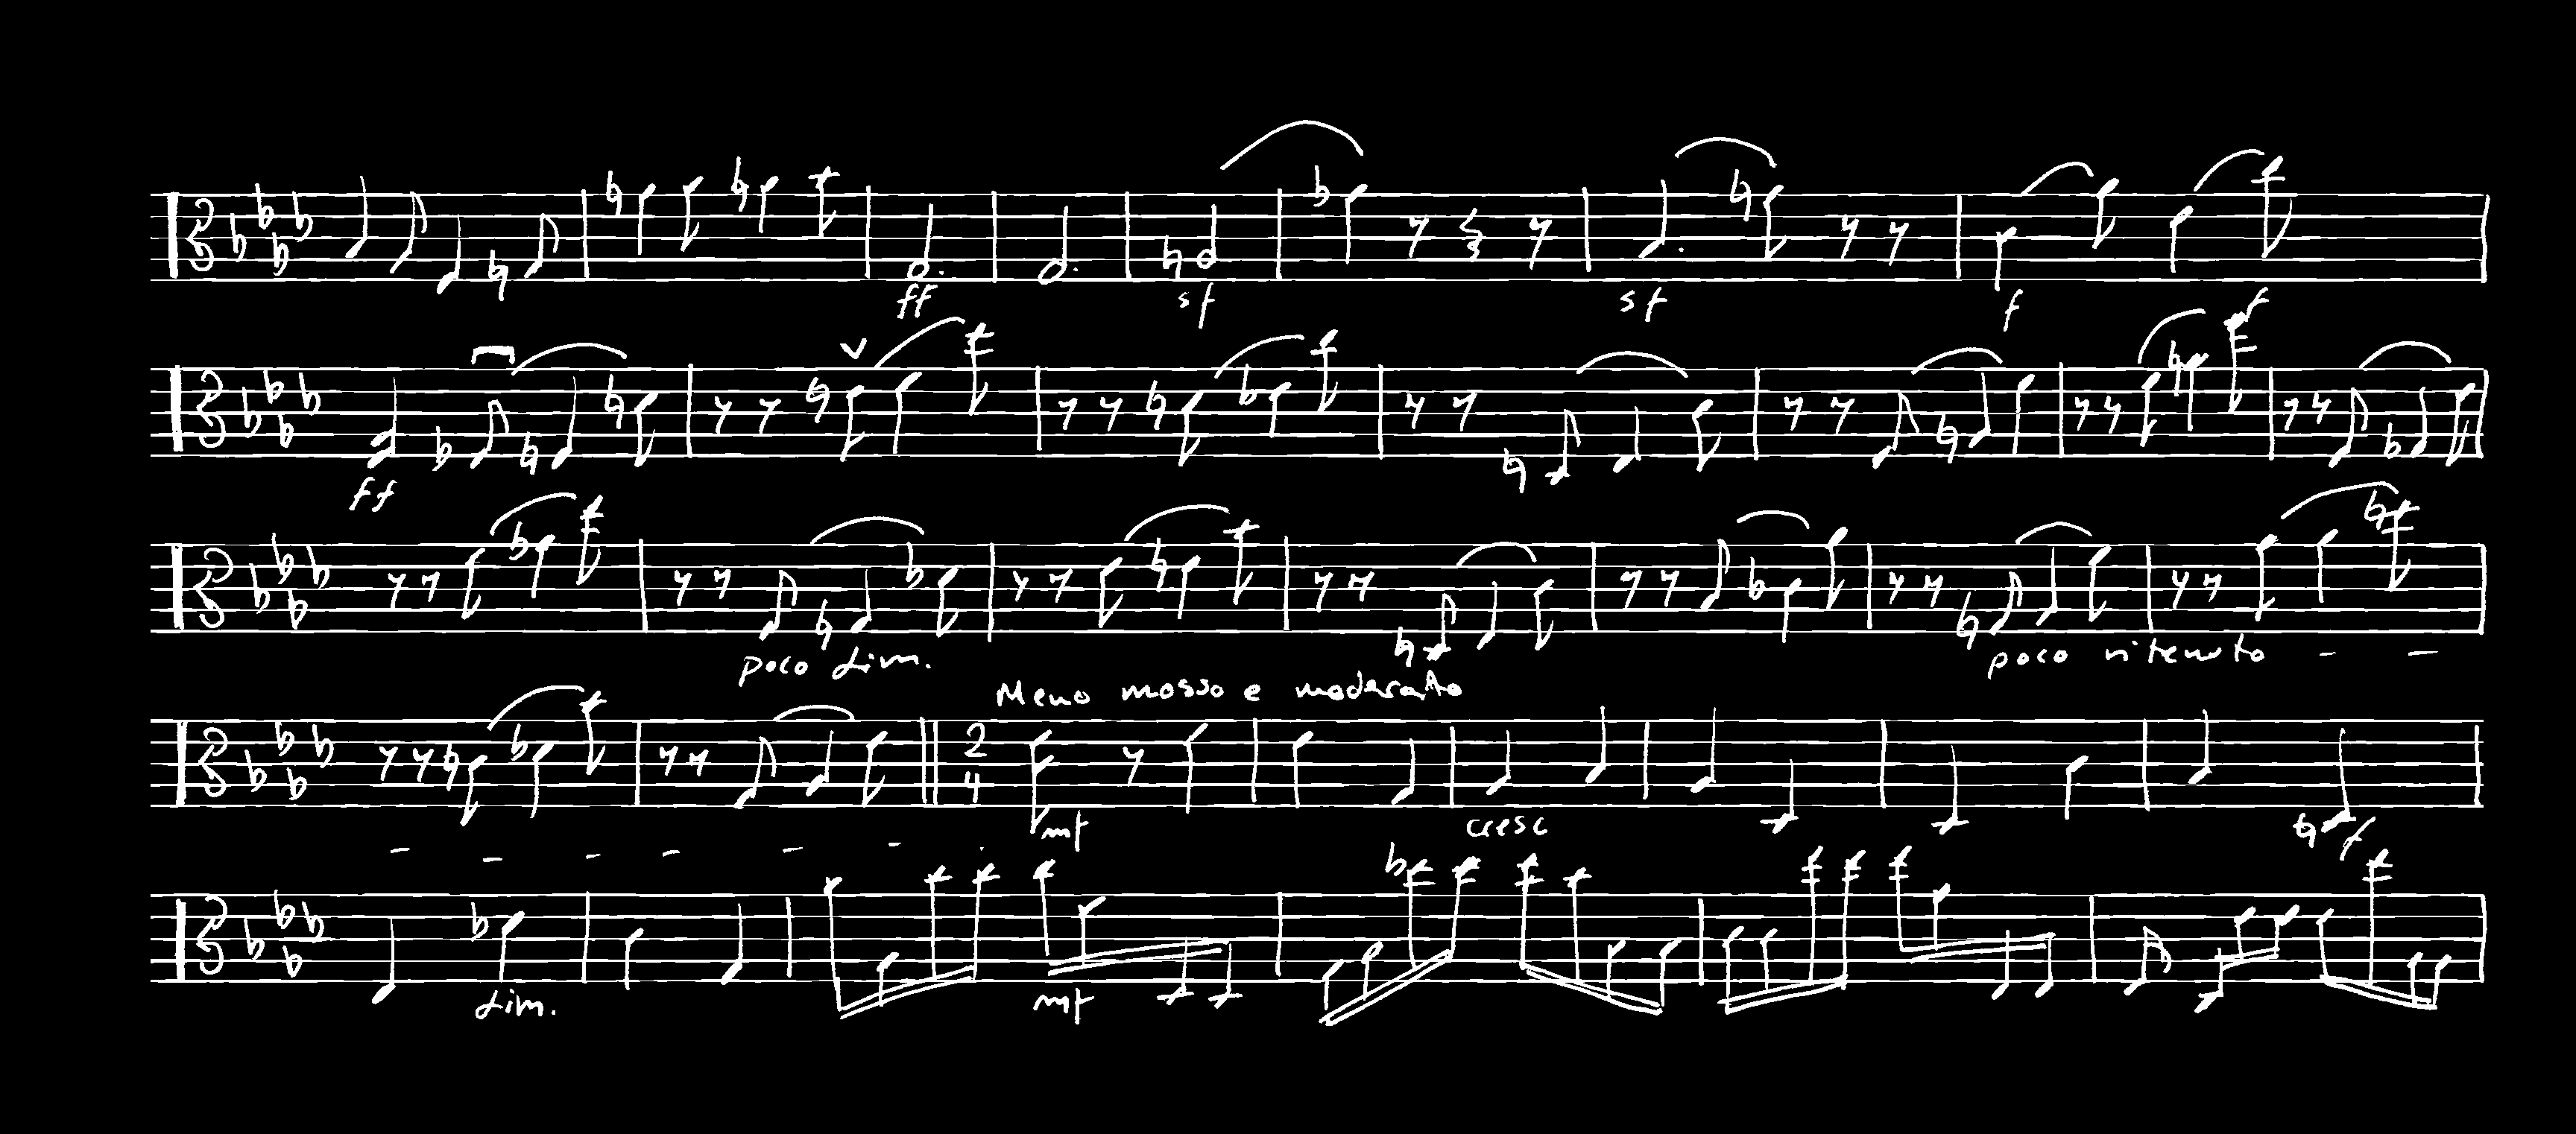 ff sf sf f f
ff
poco dim. poco ritenuto - -
Meno mosso e moderato
2 4 mf cresc f
- - - - - - .
dim. mf